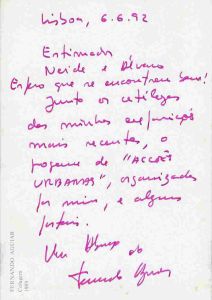 Lisboa, 6.6.92
Estimados
Neide e Álvaro
Espero que se encontrem bem!
Junto os catálogos
das minhas exposições
mais recentes, o
programa de "ACÇÕES
URBANAS", organizadas
por mim, e alguns
postais.
Um Abraço do
Fernando Aguiar
FERNANDO AGUIAR
1989